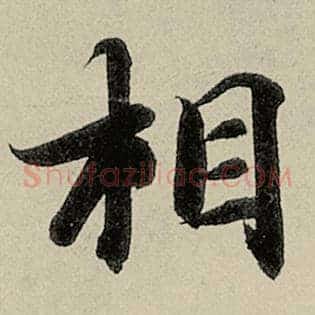 相
Shufaziliao.COM